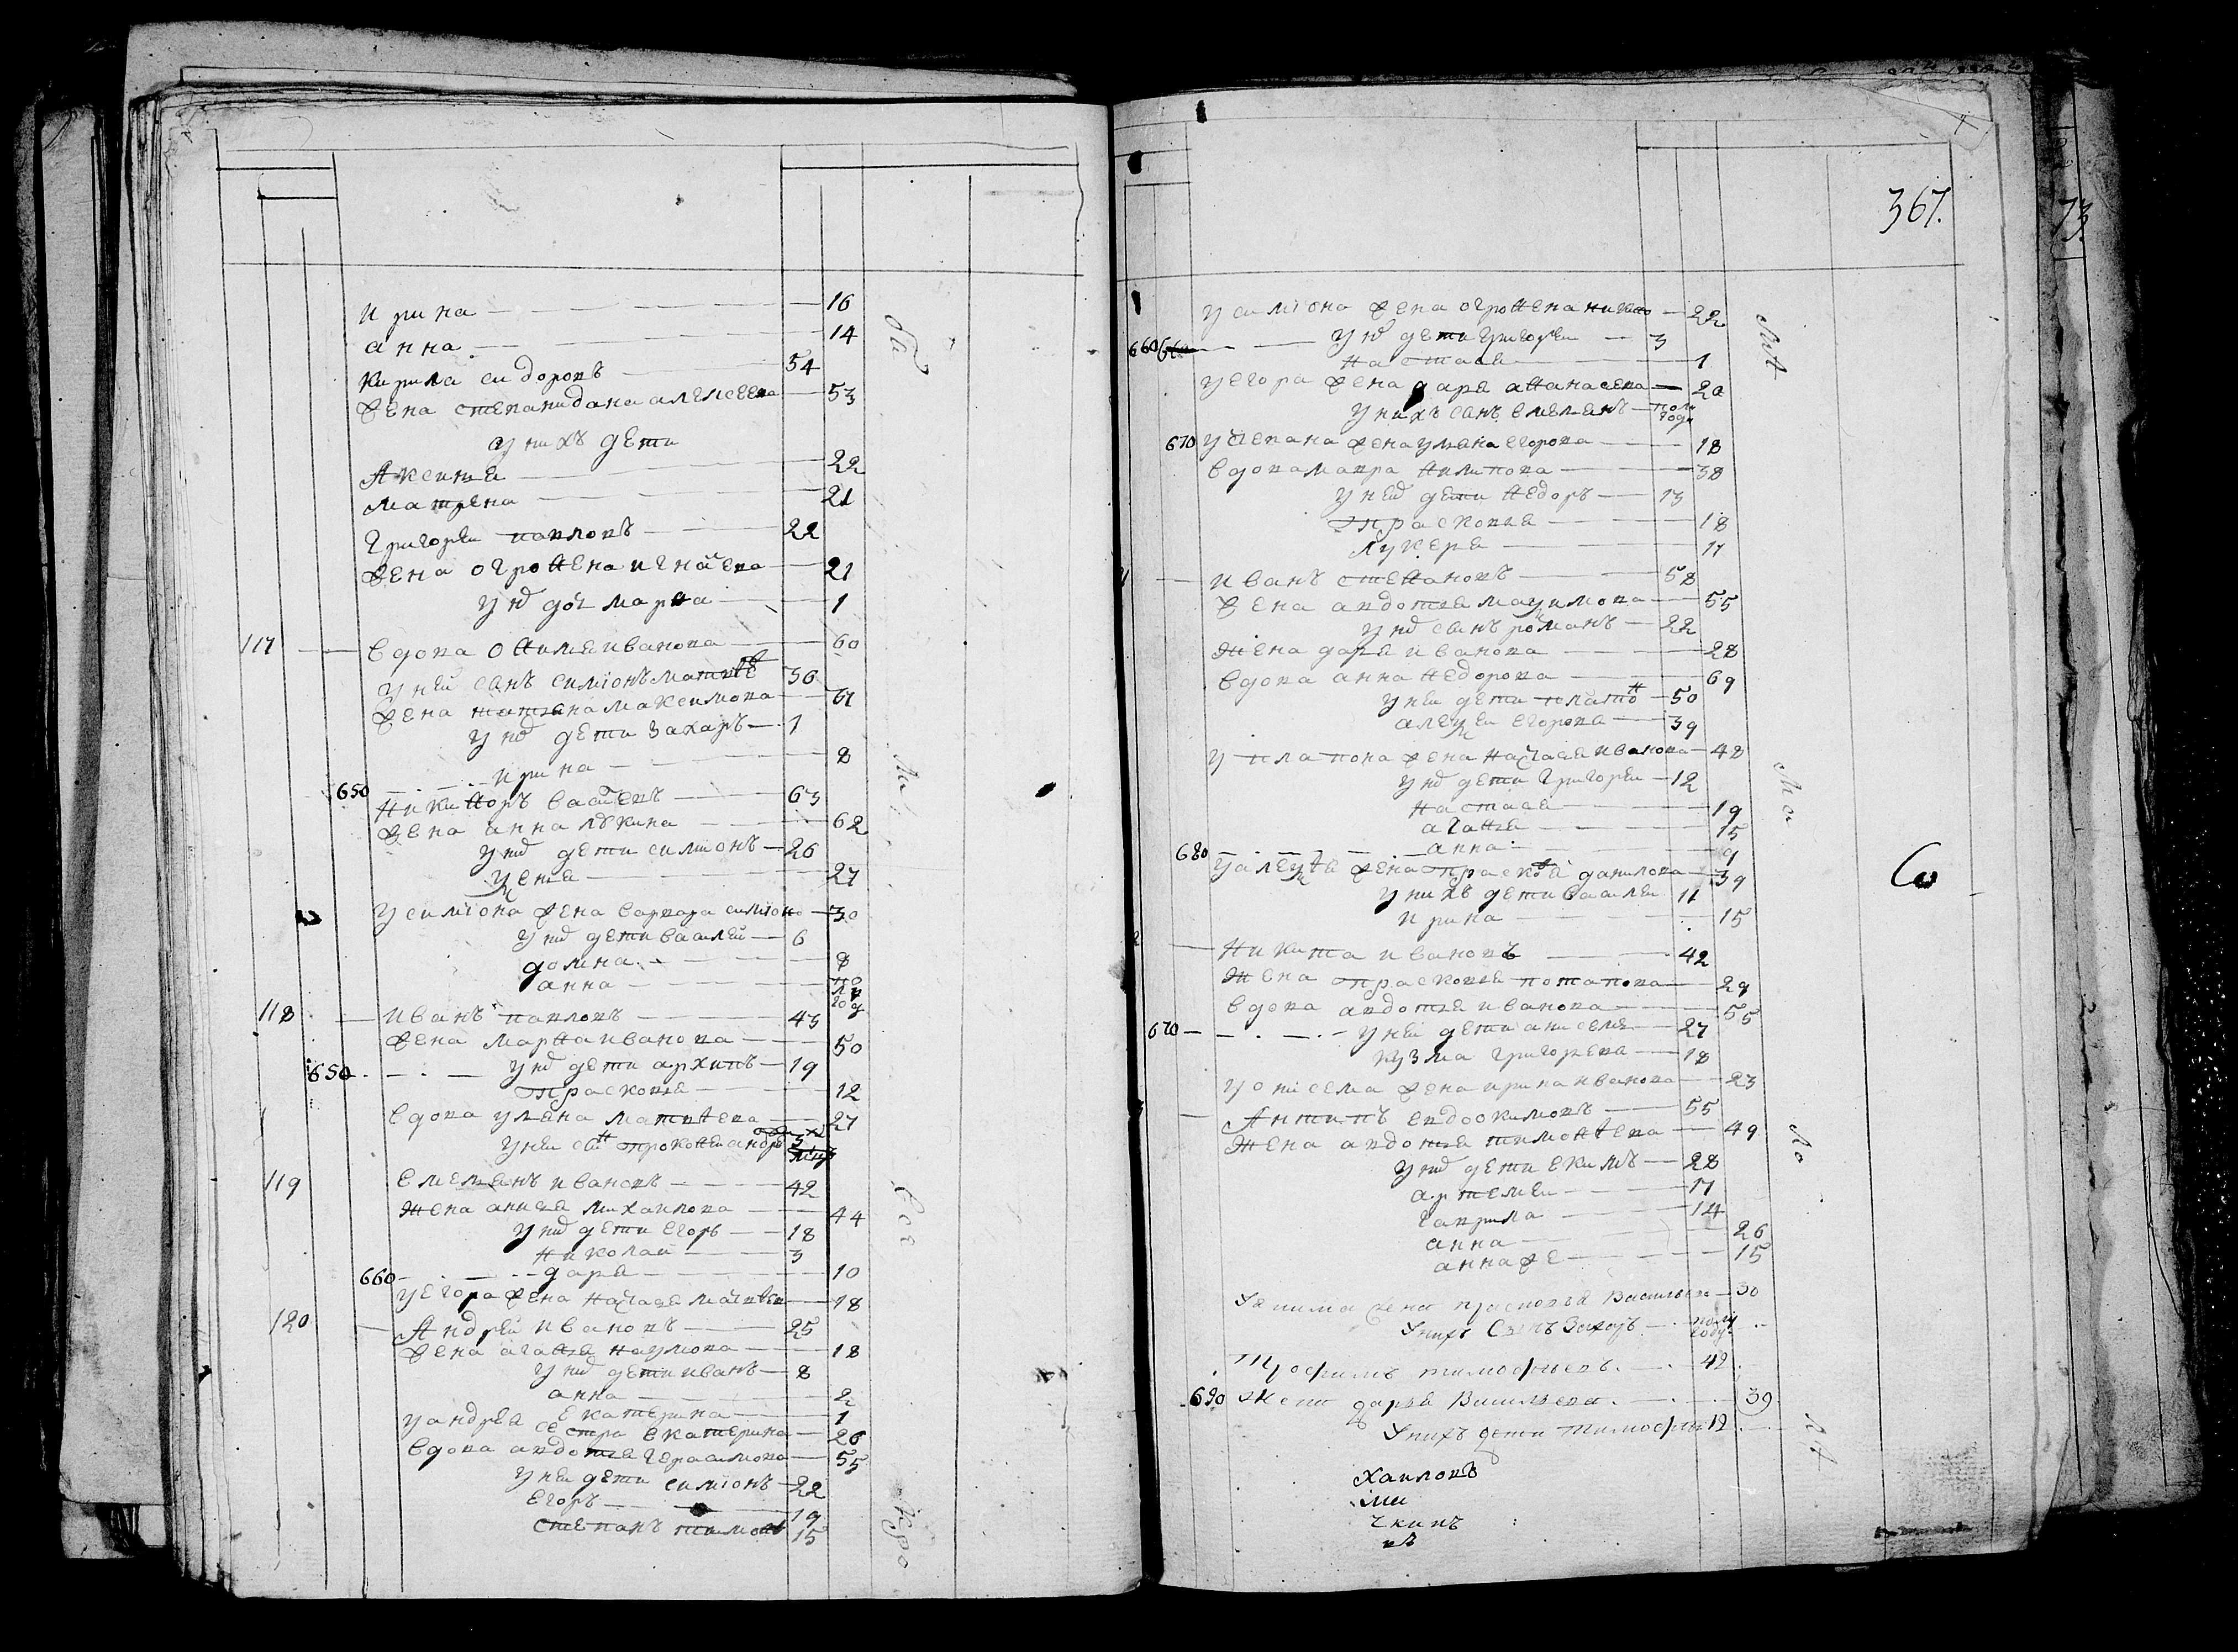 ирина — 16
анна — 14
кирила сидоровъ — 54
жена степанидана алексеева — 53
у нихъ дети
Аксинья — 22
матрена — 21
григореи павловъ — 22
жена огрофена игнатева — 21
у нихъ дочь марфа — 1
117 — вдова офимья иванова — 60
у неи сынъ симионъ матвеевъ 36
жена татьяна максимова — 61
у нихъ дети захаръ — 1
ирина — 8
650 никифоръ васильевъ — 63
жена анна лукина — 62
у нихъ дети симионъ — 26
27
у симиона жена варвара симионо — 30
у нихъ дети василеи — 6
домна — 8
анна — пол год
118 — иванъ павловъ — 43
жена марфа иванова — 50
650 — у нихъ дети архипъ — 19
прасковья — 12
вдова ульяна матвеева — 27
у неи сынъ прокофеи андре 3
119 емельянъ ивановъ — 42
жена анисья михаилова — 44
у нихъ дети егоръ — 18
николаи — 3
660 — дарья — 10
у егора жена настасья матвеев — 18
120 — Андреи ивановъ — 25
жена агафья наумова — 18
у нихъ дети иванъ — 8
анна — 2
екатерина — 1
у андрея сестра екатерина — 26
вдова авдотья герасимова — 55
у неи дети симионъ — 22
егоръ — 19
степанъ тимоф 15
367.
у симиона жена огрофена никито — 22
660 — у нихъ дети григореи — 3
настасья — 1
у егора жена дарья афанасева — 20
у нихъ сынъ емельянъ — пол года
670 у степана жена ульяна егорова — 18
вдова мавра филипова — 38
у неи дети федоръ — 13
прасковья — 18
лукерья — 11
иванъ степановъ — 58
жена авдотья максимова — 55
у нихъ сынъ романъ — 22
жена дарья иванова — 28
вдова анна федорова — 69
у неи дети платонъ — 50
алексеи егорова — 39
у платона жена настасья иванова — 48
у нихъ дети григореи — 12
настасья — 19
агафья — 15
анна — 9
680 у алексея жена прасковья данилова — 39
у нихъ дети василеи 11
ирина — 15
никита ивановъ — 42
жена прасковья потапова — 29
вдова авдотья иванова — 55
670 — у неи дети анисемъ — 27
кузма григорева — 18
у онисема жена ирина иванова — 23
Антипъ евдокимовъ — 55
жена авдотья тимофеева — 49
у нихъ дети екимъ — 28
артемеи — 17
гаврила — 14
анна — 26
анна же — 15
У якима жена прасковья Васильева — 30
Унихъ Сынъ Захаръ — пол году
Трофимъ тимофиевъ — 42
690 Жена дарья Васильева — 39
Унихъ дети тимофеи 12
хаиловъ
ми
чкинъ
въ